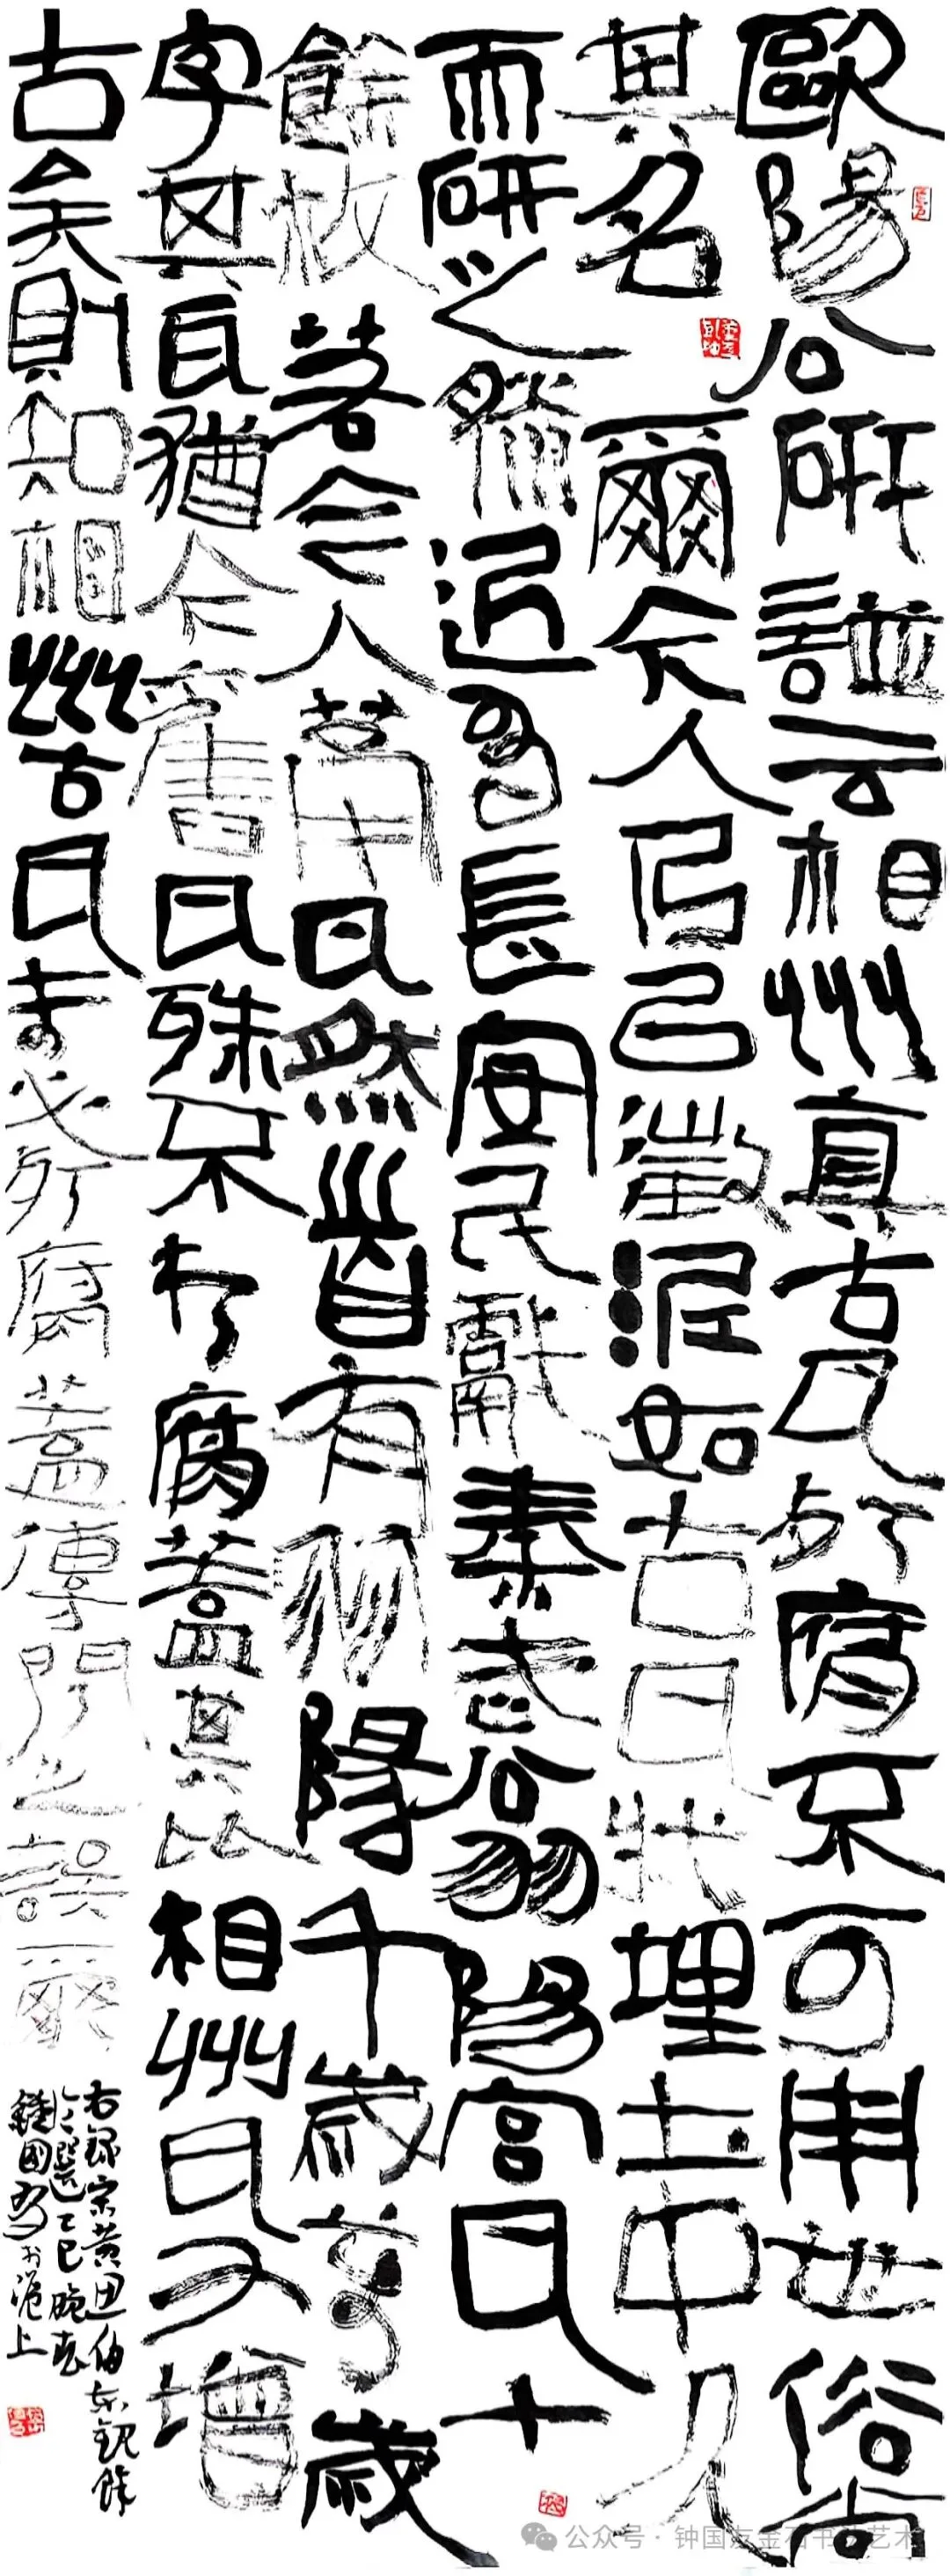 歐陽公研譜云相州真古瓦朽腐不可用世俗尚
其名爾今人乃以澂泥如古瓦狀埋土中久
而研之然近有長安民獻秦武公羽陽宮瓦十
餘枚若今人筒瓦然皆有羽陽千歲萬歲
字其瓦猶今舊瓦殊不朽腐蓋其比相州瓦又增
古矣則知相州古瓦未必朽腐蓋傳聞之誤爾
右錄宋黃思伯東觀餘
論選乙巳晚春
鍾國友於滬上
公众号·钟国友金石书法艺术